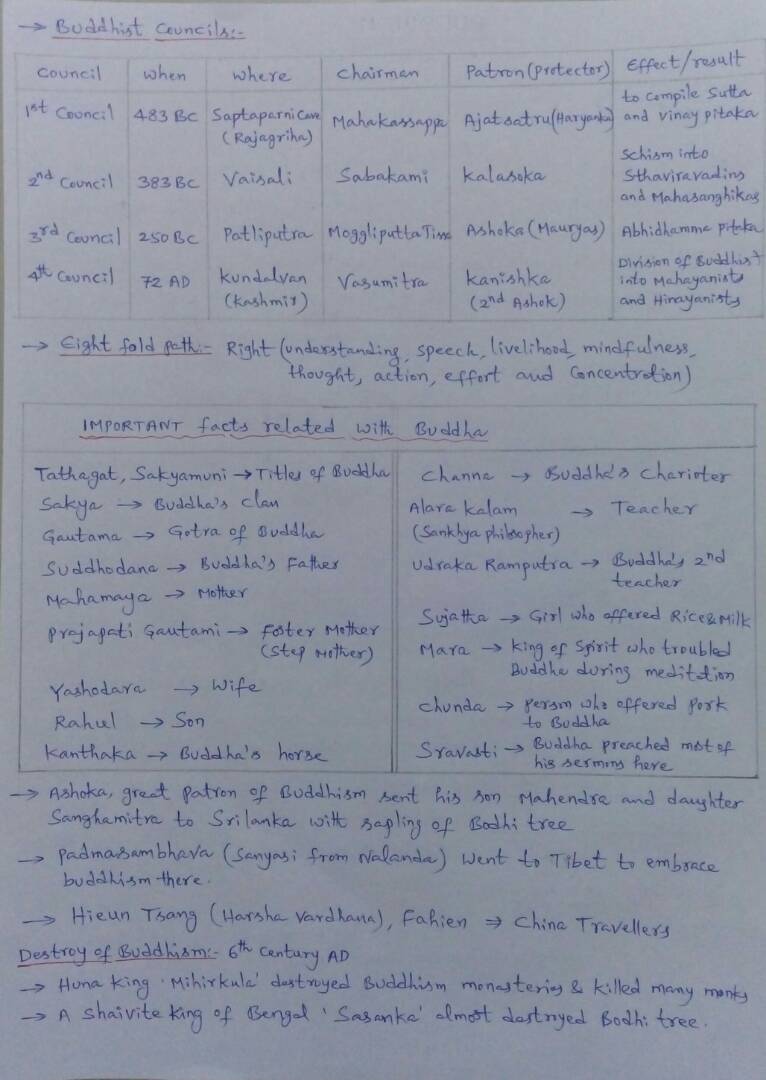 → Buddhist Councils:-
Council when where Chairman Patron (Protector) Effect/result
1st Council 483 BC Saptaparni Cave (Rajagriha) Mahakassappa Ajatsatru (Haryanka) to Compile Sutta and vinay pitaka
2nd Council 383 BC Vaisali Sabakami Kalasoka Schism into Sthaviravadins and Mahasanghikas
3rd Council 250 BC Patliputra Moggliputta Tissa Ashoka (Mauryas) Abhidhamma Pitaka
4th Council 72 AD Kundalvan (Kashmir) Vasumitra Kanishka (2nd Ashok) Division of Buddhist into Mahayanists and Hinayanists
→ Eight fold path:- Right (understanding, speech, livelihood, mindfulness,
thought, action, effort and Concentration)
IMPORTANT facts related with Buddha
Tathagat, Sakyamuni → Titles of Buddha
Sakya → Buddha's clan
Gautama → Gotra of Buddha
Suddhodana → Buddha's Father
Mahamaya → Mother
Prajapati Gautami → Foster Mother
(Step Mother)
Yashodara → Wife
Rahul → Son
Kanthaka → Buddha's horse
Channa → Buddha's Charioter
Alara Kalam → Teacher
(Sankhya philosopher)
Udraka Ramputra → Buddha's 2nd
teacher
Sujatha → Girl who offered Rice & Milk
Mara → King of Spirit who troubled
Buddha during meditation
Chunda → person who offered Pork
to Buddha
Sravasti → Buddha preached most of
his sermons here
→ Ashoka, great patron of Buddhism sent his son Mahendra and daughter
Sanghamitra to Srilanka with sapling of Bodhi tree
→ Padmasambhava (Sanyasi from Nalanda) went to Tibet to embrace
buddhism there.
→ Hieun Tsang (Harsha Vardhana), Fahien ⇒ China Travellers
Destroy of Buddhism:- 6th Century AD
→ Huna King 'Mihirkula' destroyed Buddhism monasteries & killed many monks
→ A Shaivite King of Bengal 'Sasanka' almost destroyed Bodhi tree.